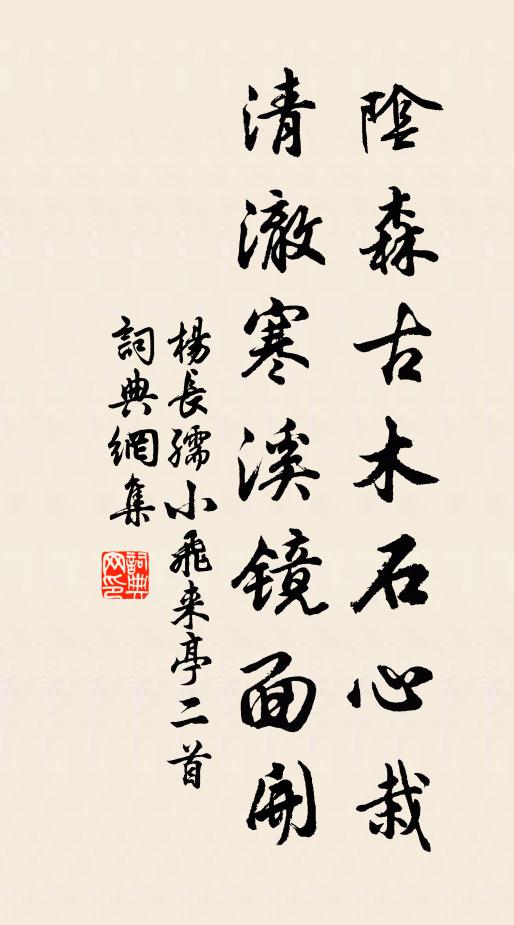 陰森古木石心栽
清澈寒溪鏡面開
楊長孺小飛来亭二首
詞典網集
詞典网印